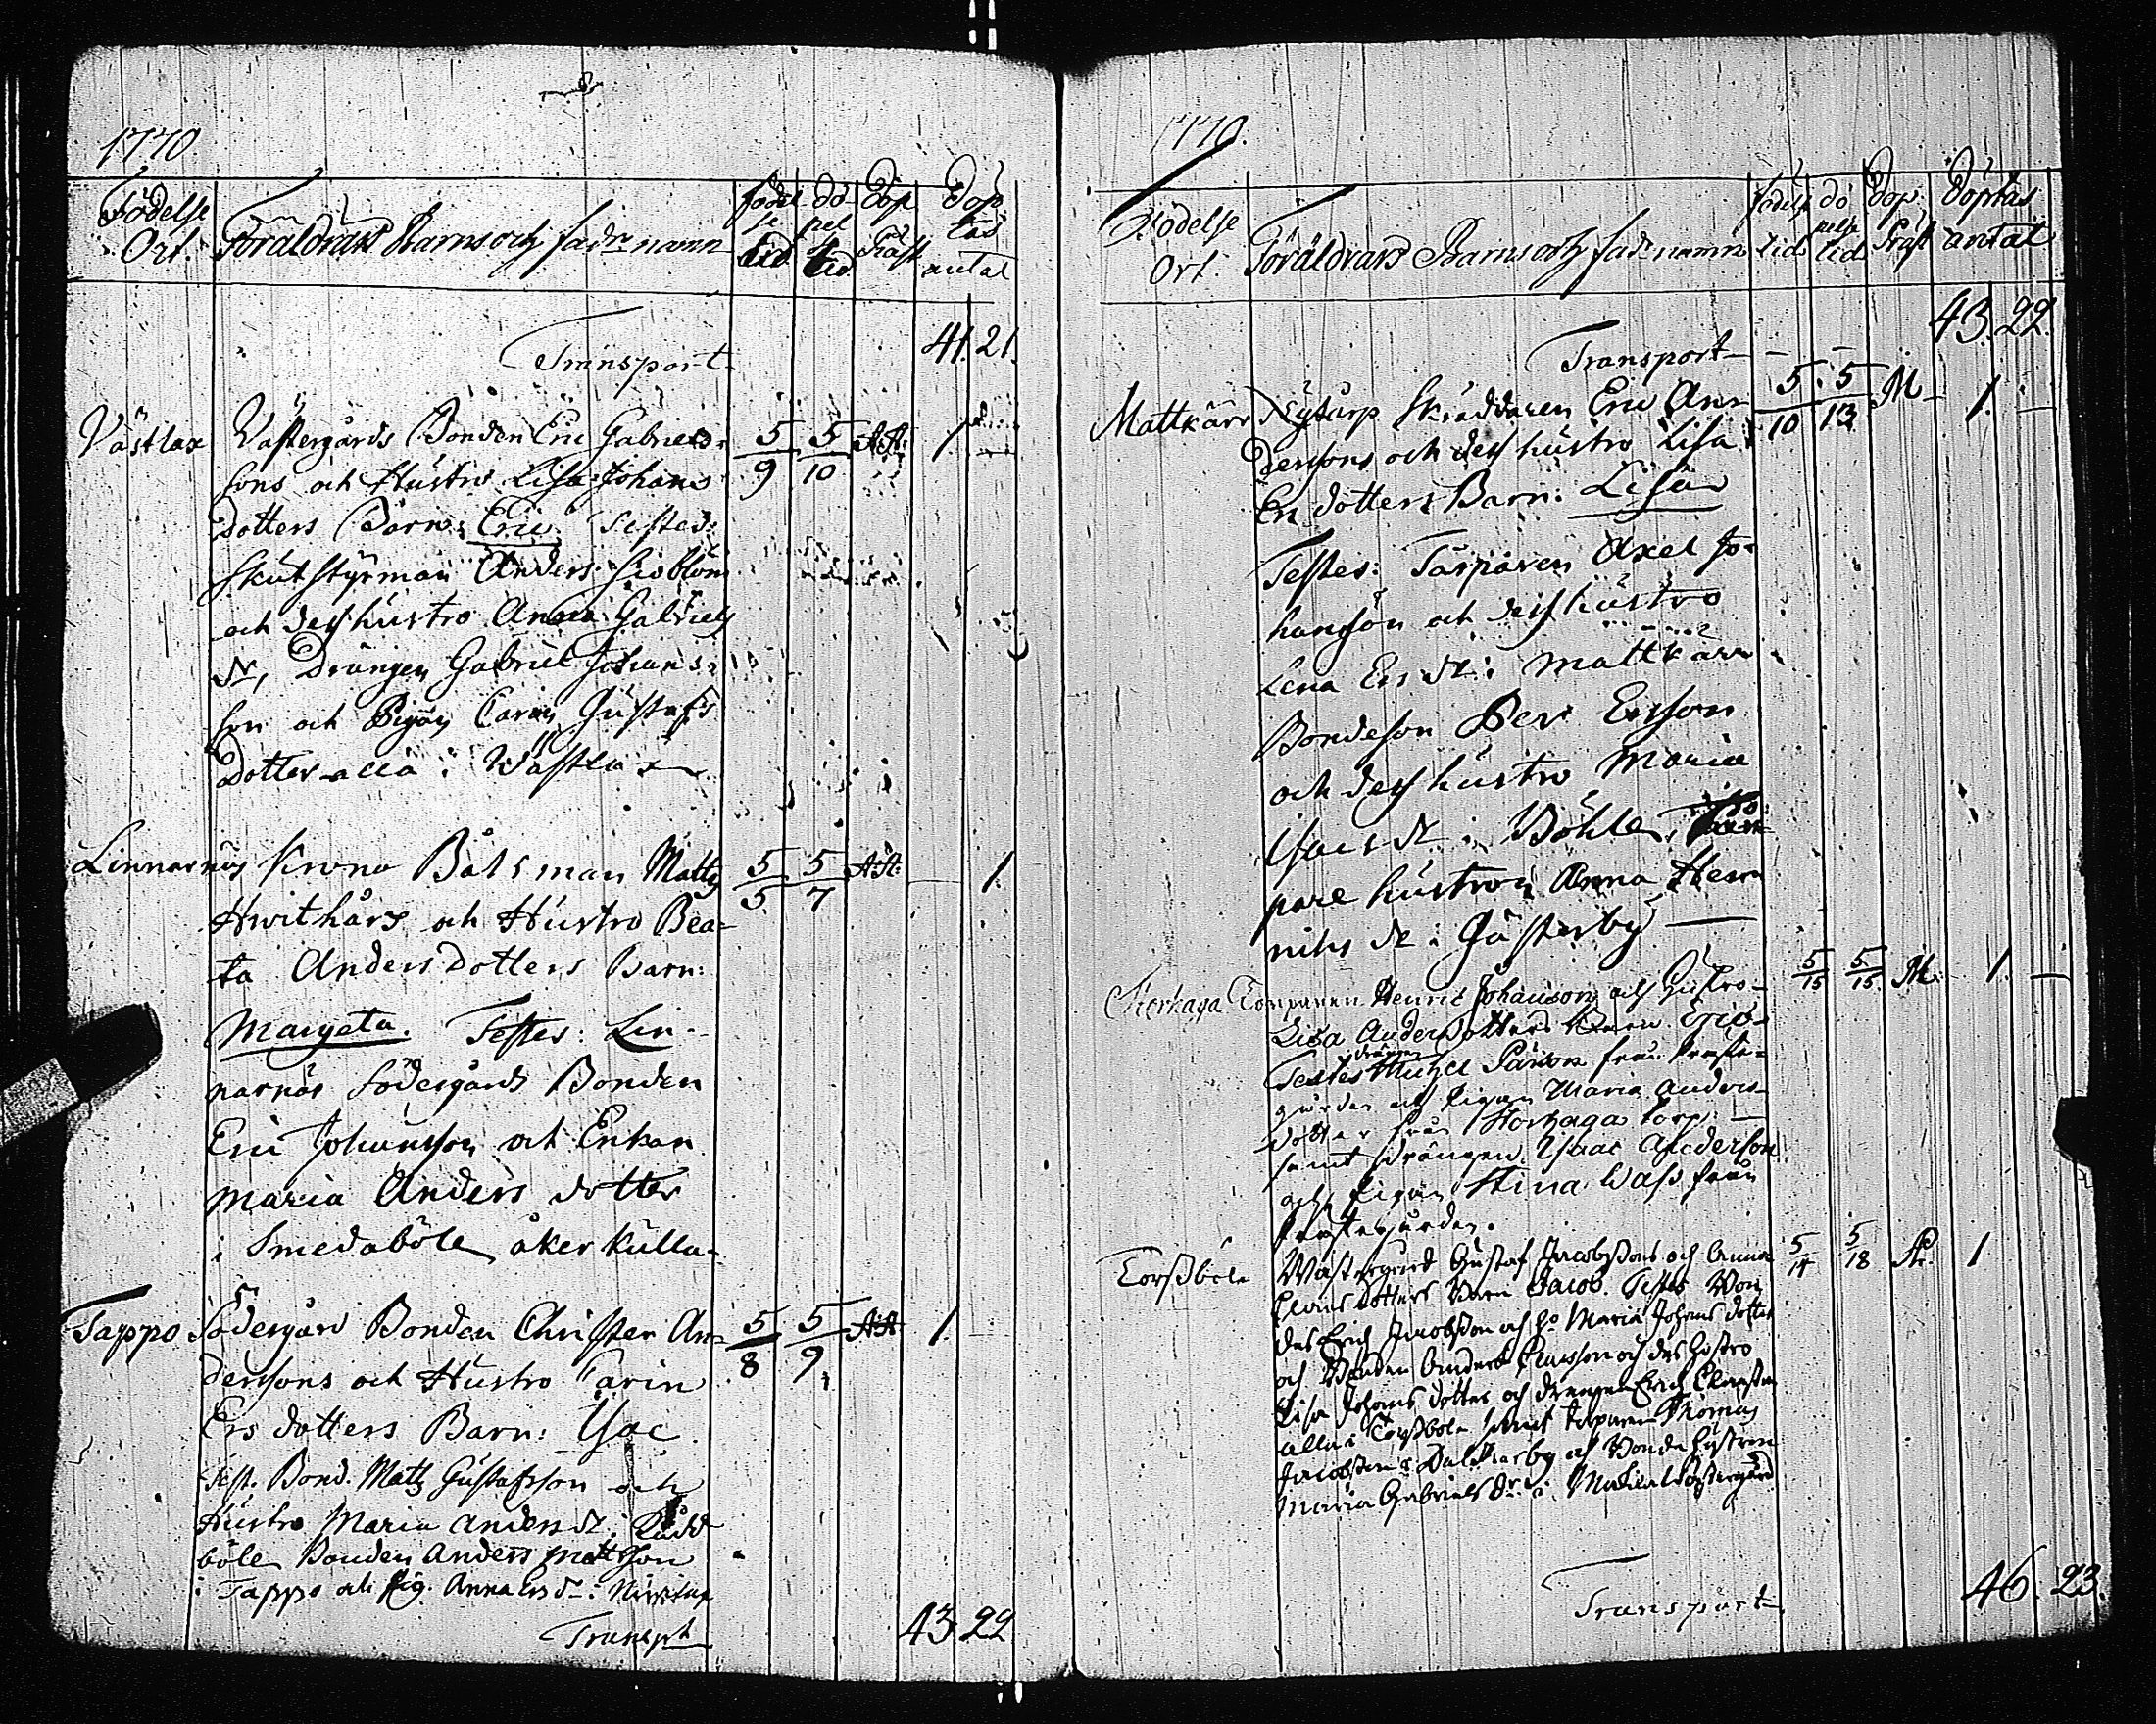 1770.
Födelse Ort. Föräldrars Barns och fadr namn födelse tid döpelse tid Döp Präst Döptas antal
Transport 41. 21.
Västlax Västergårds Bonden Eric Gabriels- 5/9 5/10 A.St. 1.
sons och Hustro Lisa Johans
Dotters Barn: Eric Testes:
Skutstyrman Anders Siöblom
och dess hustro Anna Gabriels
dr, Drängen Gabriel Johans-
son och Pigan Carin Gustafs
Dotter alla i Wästlax
Linnarnäs Krono Båtsman Matts 5/5 5/7 A.St. 1.
Hwithårs och Hustro Bea-
ta Anders Dotters Barn:
Margeta. Testes: Lin-
narnäs Södergårds Bonden
Eric Johansson och Enkan
Maria Anders dotter
i Smedaböle åker kulla
Tappo Södergård Bonden Christer An- 5/8 5/9 A.St. 1.
derssons och Hustro Carin
Ers dotters Barn: Isac
Test. Bond. Matts Gustafsson och
Hustro Maria Anders dr i Rudd
böle Bonden Anders Mattsson
i Tappo och Pig. Anna Ers dr i
Transpt 43. 22
1770.
Födelse Ort Föräldrars Barns och fadr namn födelse tid döpelse tid Döp. Präst Döptas antal
43. 22.
Transport
Mattkärr Nytorp Skräddaren Eric An- 5/10 5/13 M 1.
derssons och dess hustro Lisa
Ers dotters Barn: Lisa
Testes: Tårparen Axel Jo-
hansson och dess hustro
Lena Ers dr i Mattkärr
Bondeson Per Ersson
och dess hustro Maria
Isacs dr i Böhle, Tor-
pare hustron Anna Hen
riks dr i Gästerby
Storhaga Torparen Henric Johanson och Hustro 5/15 5/15. M. 1.
Lisa Anders dotters Barn Eric
drängen
Testes Michel Pärson från Preste-
gården och Pigan Maria Anders-
dotter från Storhaga torp:
samt drängen Isaac Anderson
och Pigan Stina Wass från
Prestegården.
Torssböle Wästergård Gustaf Jacobssons och Anna 5/14 5/18 St. 1
Claes dotters Barn Jacob. Testes Bon
den Erich Jacobsson och h. Maria Johans dotter
och Bonden Anders Claesson och des Hustro
Lisa Johans dotter och drengen Erich Claesson
alla i Torssböle samt torparen Thomas
Jacobsson i Dalkarby och Bonde hustron
Maria Gabriels dr i Westergård
Transport 46. 23.